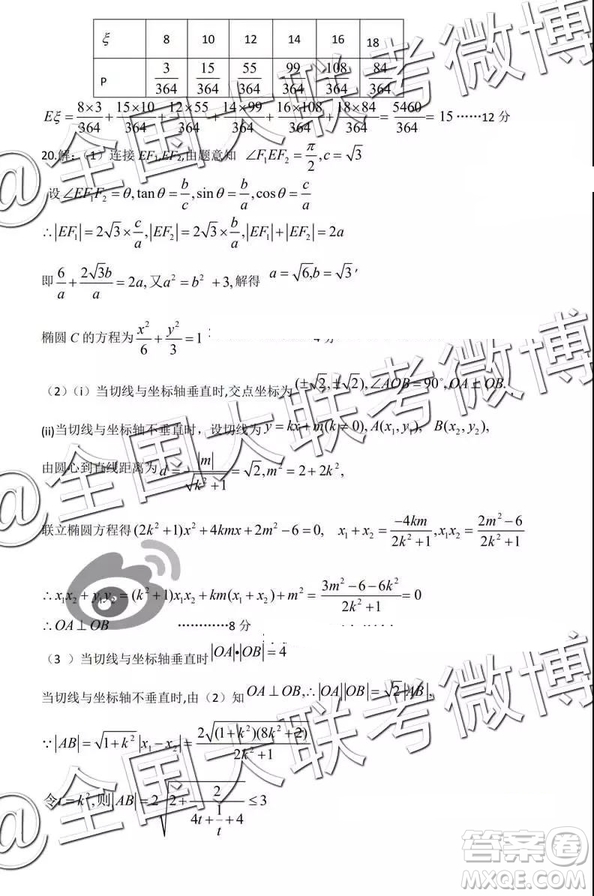 ξ 8 10 12 14 16 18
P 3/364 15/364 55/364 99/364 108/364 84/364
Eξ = 8×3/364 + 15×10/364 + 12×55/364 + 14×99/364 + 16×108/364 + 18×84/364 = 5460/364 = 15 ……12 分
20.解:（1）连接 EF₁,EF₂,由题意知 ∠F₁EF₂ = π/2, c = √3
设∠EF₁F₂ = θ, tanθ = b/c, sinθ = b/a, cosθ = c/a
∴|EF₁| = 2√3 × c/a, |EF₂| = 2√3 × b/a, |EF₁| + |EF₂| = 2a
即 6/a + 2√3b/a = 2a, 又 a² = b² + 3, 解得 a = √6, b = √3
椭圆 C 的方程为 x²/6 + y²/3 = 1 4 分
（2）(i）当切线与坐标轴垂直时,交点坐标为(±√2, ±√2), ∠AOB = 90°, OA ⊥ OB.
(ii)当切线与坐标轴不垂直时，设切线为 y = kx + m(k ≠ 0), A(x₁, y₁), B(x₂, y₂)
由圆心到直线距离为 d = |m|/√(k²+1) = √2, m² = 2 + 2k²,
联立椭圆方程得 (2k² +1)x² + 4kmx + 2m² − 6 = 0, x₁ + x₂ = −4km/(2k²+1), x₁x₂ = (2m²−6)/(2k²+1)
∴ x₁x₂ + y₁y₂ = (k² +1)x₁x₂ + km(x₁ + x₂) + m² = (3m² − 6 − 6k²)/(2k² +1) = 0
∴ OA ⊥ OB …………8 分
（3 ）当切线与坐标轴垂直时 |OA|•|OB| = 4
当切线与坐标轴不垂直时,由（2）知 OA ⊥ OB, ∴|OA||OB| = √2|AB|,
∵|AB| = √(1+k²)|x₁ − x₂| = 2√((1+k²)(8k²+2))/(2k² +1)
令 t = k², 则|AB| = 2√(2 + 2/(4t + 1/t + 4)) ≤ 3
@全国大联考微博
@全国大联考微博
@全国大联考微博
答案圈
MXQE.COM